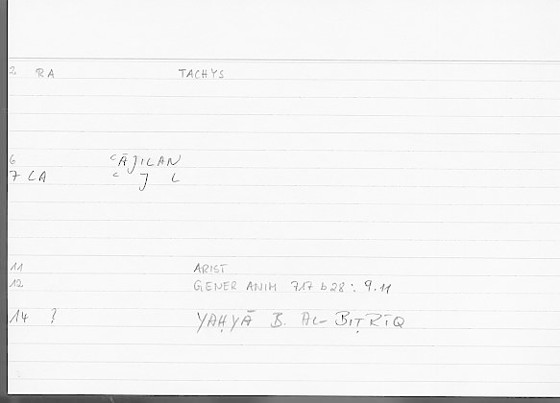 2 RA TACHYS
6 ʿĀJILAN
7 LA ʿ J L
11 ARIST
12 GENER ANIM 717 b 28 : 9.11
14 ? YAḤYĀ B. AL-BIṬRĪQ